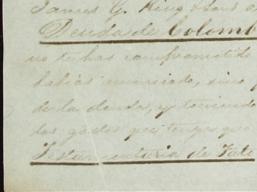 James G. King & Sons
Deuda de Colomb
no te has comprometido
habías anunciado, sino
de la deuda, y teniendo
los gastos que tengas que
Testamentaría de